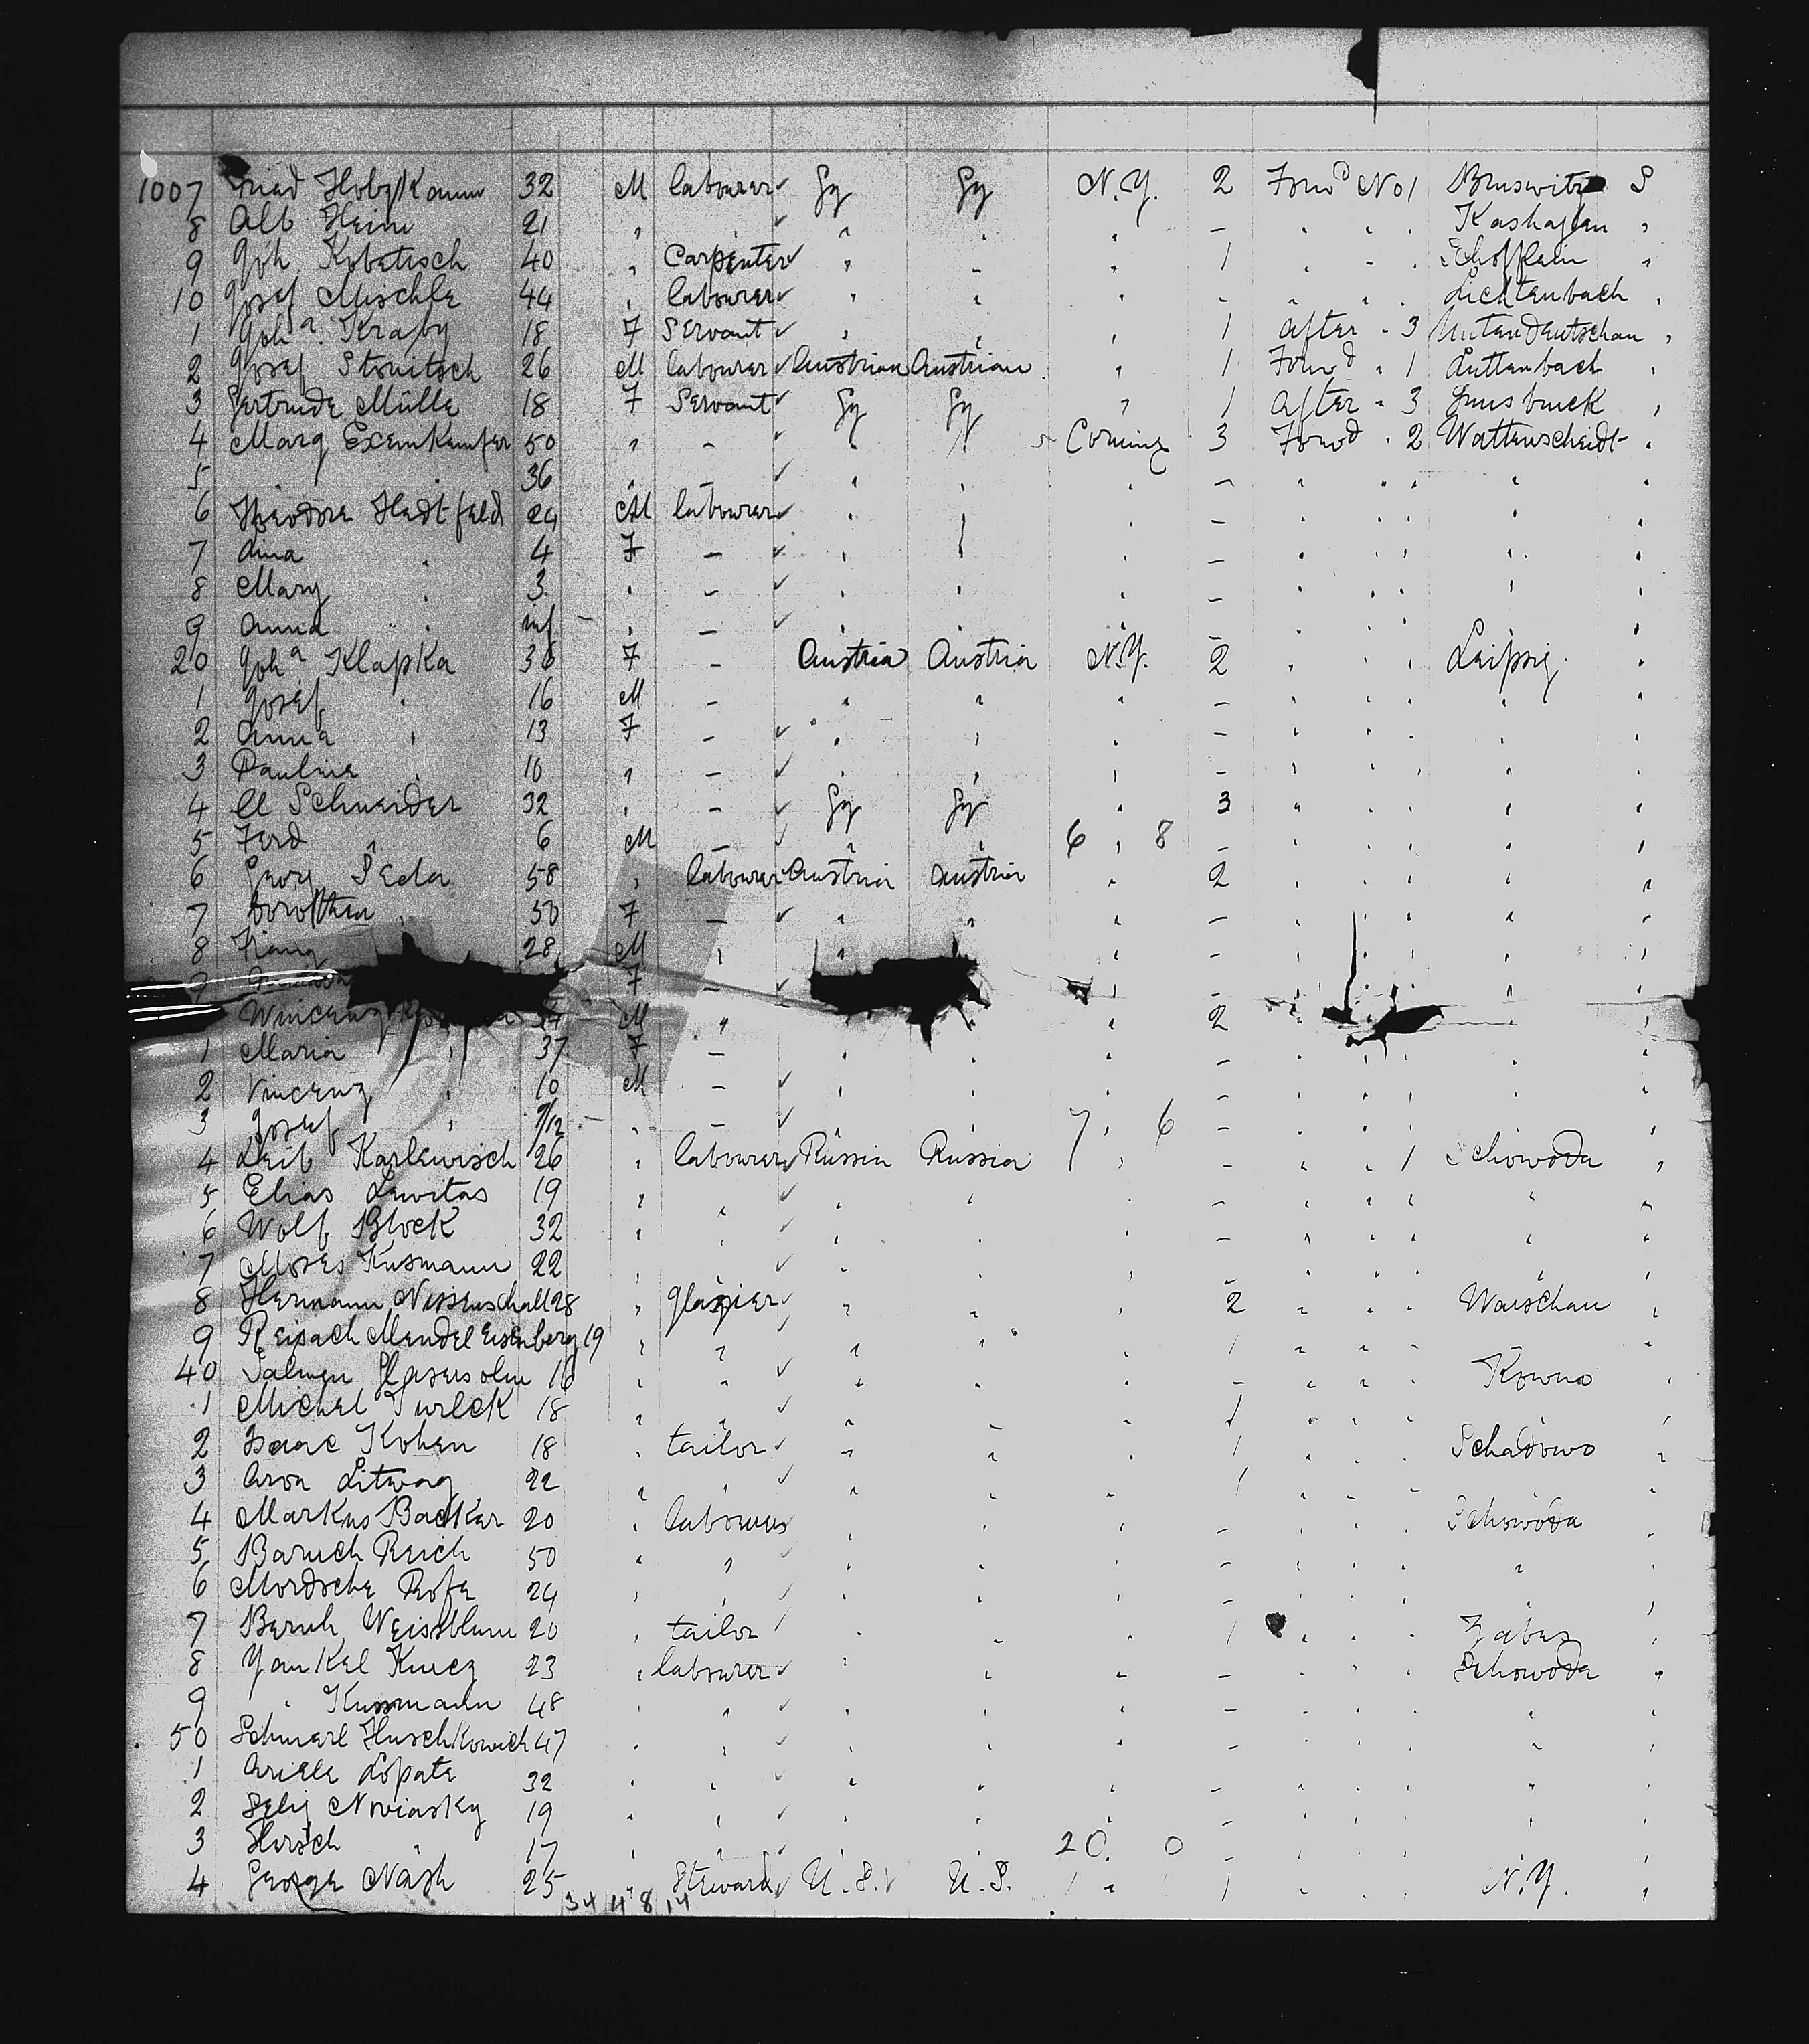 1007 Hobzkamm 32 M labourer ✓ Gy Gy N.Y. 2 Forwd No 1 Bruswitz S
8 Alb Heim 21 " " ✓ " " " - " " " Kashaglen "
9 Joh Kobetisch 40 " Carpenter ✓ " " " 1 " " " Schofflein "
10 Josef Mischle 44 " labourer ✓ " " " - " " " Lichtenbach "
1 Joha. Kraby 18 F Servant ✓ " " " 1 after " 3 Untendeutschau "
2 Josef Stonitsch 26 M labourer ✓ Austrian Austrian " 1 Forwd " 1 Luttenbach "
3 Gertrude Mülle 18 F Servant ✓ Gy Gy " 1 after " 3 Innsbruck "
4 Marg Exemkemfer 50 " - ✓ " " Corning 3 Forwd " 2 Wattenscheidt "
5 36 " - ✓ " " " - " " " " "
6 Theodore Hedtfeld 24 M labourer ✓ " " " - " " " " "
7 Lina " 4 F - ✓ " " " - " " " " "
8 Mary " 3 " - ✓ " " " - " " " " "
9 Anna " inf - " - ✓ " " " - " " " " "
20 Joha Klapka 36 F - Austria Austria N.Y. 2 " " " Leipzig "
1 Josef " 16 M - " " " - " " " " "
2 Anna " 13 F - ✓ " " " - " " " " "
3 Pauline " 10 " - ✓ " " " - " " " " "
4 El Schneider 32 " - ✓ Gy Gy " 3 " " " " "
5 Ferd " 6 M - ✓ " " 6 " 8 - " " " " "
6 Georg Seda 58 " labourer Austria Austria " 2 " " " " "
7 Dorothea " 50 F - ✓ " " " - " " " " "
8 Franz 28 M " " " - " " " " "
9 F - ✓ " - " " " "
Wincenz M " " " 2 " "
1 Maria " 37 F - " " " - " " " " "
2 Vincenz " 10 M - ✓ " " " - " " " " "
3 Josef " 9/12 - " - ✓ " " 7 " 6 - " " " "
4 Leib Karlewisch 26 " labourer ✓ Russia Russia 7 " - " " 1 Schowoda "
5 Elias Lewitas 19 " " ✓ " " " - " " " " "
6 Wolf Block 32 " " ✓ " " " - " " " " "
7 Moses Kusmann 22 " " ✓ " " " - " " "
8 Hermann Nissenschall 28 " glazier ✓ " " " 2 " " " Warschau "
9 Reisach Mendel Eisenberg 19 " " " " " 1 " " " " "
40 Salmen Glasersohn 16 " " ✓ " " " - " " " Kowno "
1 Michel Turlck 18 " " ✓ " " " 1 " " " " "
2 Isaac Kohen 18 " tailor ✓ " " " 1 " " " Schadowo "
3 Aron Litwag 22 " " ✓ " " " 1 " " " " "
4 Markus Backar 20 " labourers " " " - " " " Schowoda "
5 Baruch Reich 50 " " ✓ " " " - " " " " "
6 Mordsche Rofe 24 " " ✓ " " " - " " " " "
7 Beruh Weissblum 20 " tailor " " " 1 " " " Zabez "
8 Yankel Kucz 23 " labourer ✓ " " " - " " " Schowoda "
9 " Kussmann 48 " " ✓ " " " - " " " " "
50 Schmerl Huschkowich 47 " " ✓ " " " - " " " " "
1 Arielle Lopate 32 " " ✓ " " " - " " " " "
2 Selig Noviasky 19 " " ✓ " " " - " " " " "
3 Hirsch " 17 " " ✓ " " 20 " 0 - " " " " "
4 George Nash 25 Steward U.S. ✓ U.S. 1 " 1 " " " N.Y. "
34 4 8 14